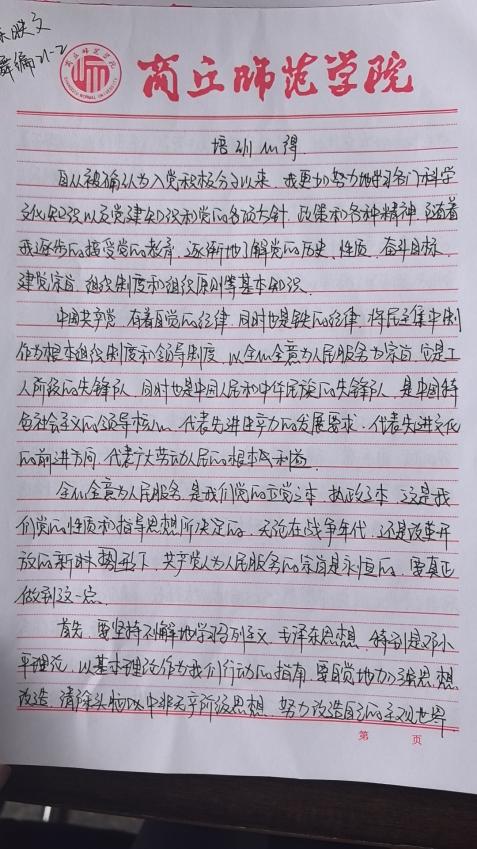 舞编21-2
商丘师范学院
培训心得
自从被确认为入党积极分子以来，我更加努力地学习各门科学
文化知识以及党建知识和党的各项大针、政策和各种精神，随着
我逐步的接受党的教育，逐渐地了解党的历史、性质、奋斗目标、
建党宗旨、组织制度和组织原则等基本知识。
中国共产党，有着自觉的纪律，同时也是铁的纪律，将民主集中制
作为根本组织制度和领导制度，以全心全意为人民服务为宗旨，它是工
人阶级的先锋队，同时也是中国人民和中华民族的先锋队，是中国特
色社会主义的领导核心，代表先进生产力的发展要求，代表先进文化
的前进方向，代表广大劳动人民的根本利益。
全心全意为人民服务，是我们党的立党之本，执政之本，这是我
们党的性质和指导思想所决定的，无论在战争年代，还是改革开
放的新时势形下，共产党人为人民服务的宗旨是永恒的，要真正
做到这一点，
首先，要坚持不懈地学习马列主义、毛泽东思想，特别是邓小
平理论，以基本理论作为我们行动的指南，要自觉地加强思想
改造，清除头脑以中非无产阶级思想，努力改造自己的主观世界，
第 页